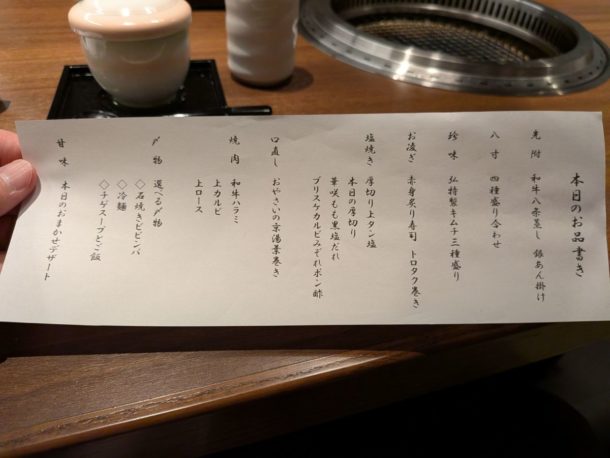 本日のお品書き
先附 和牛八条蒸し 銀あん掛け
八寸 四種盛り合わせ
珍味 弘特製キムチ三種盛り
お凌ぎ 赤身炙り寿司 トロタク巻き
塩焼き 厚切り上タン塩
本日の厚切り
華咲もも黒塩だれ
ブリスケカルビみぞれポン酢
口直し おやさいの京湯葉巻き
焼肉 和牛ハラミ
上カルビ
上ロース
〆物 選べる〆物
◇石焼きビビンバ
◇冷麺
◇チゲスープとご飯
甘味 本日のおまかせデザート